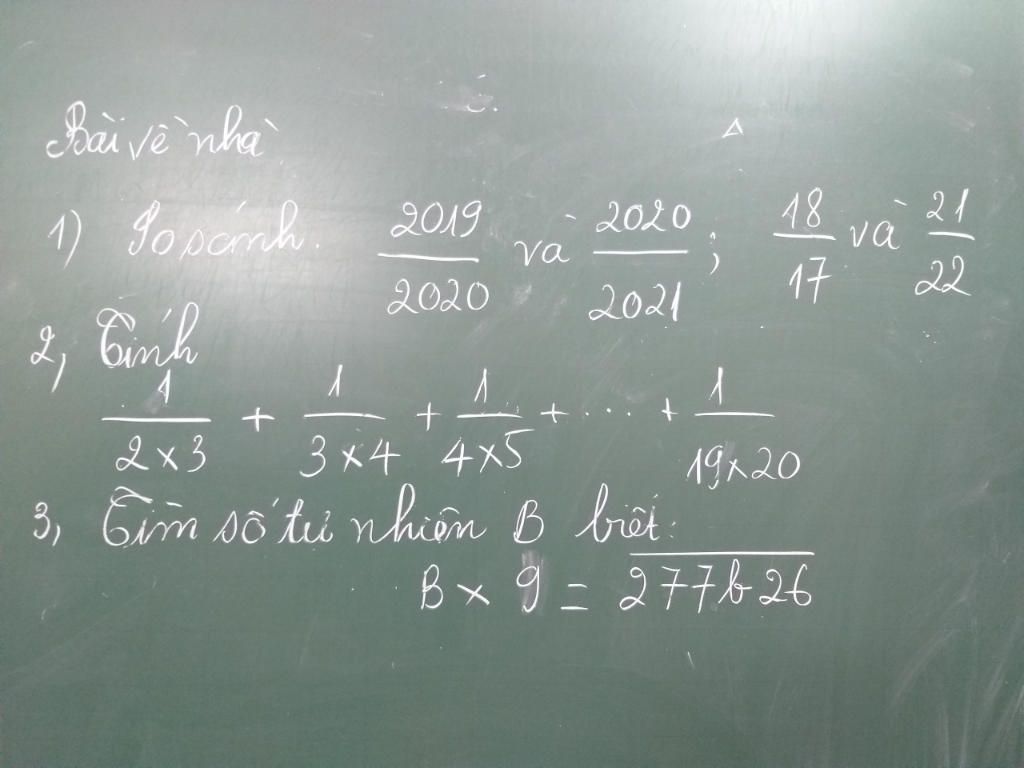 Bài về nhà
1) So sánh. 2019/2020 và 2020/2021; 18/17 và 21/22
2, Tính
1/(2×3) + 1/(3×4) + 1/(4×5) + ... + 1/(19×20)
3, Tìm số tự nhiên B biết:
B × 9 = \overline{277b26}